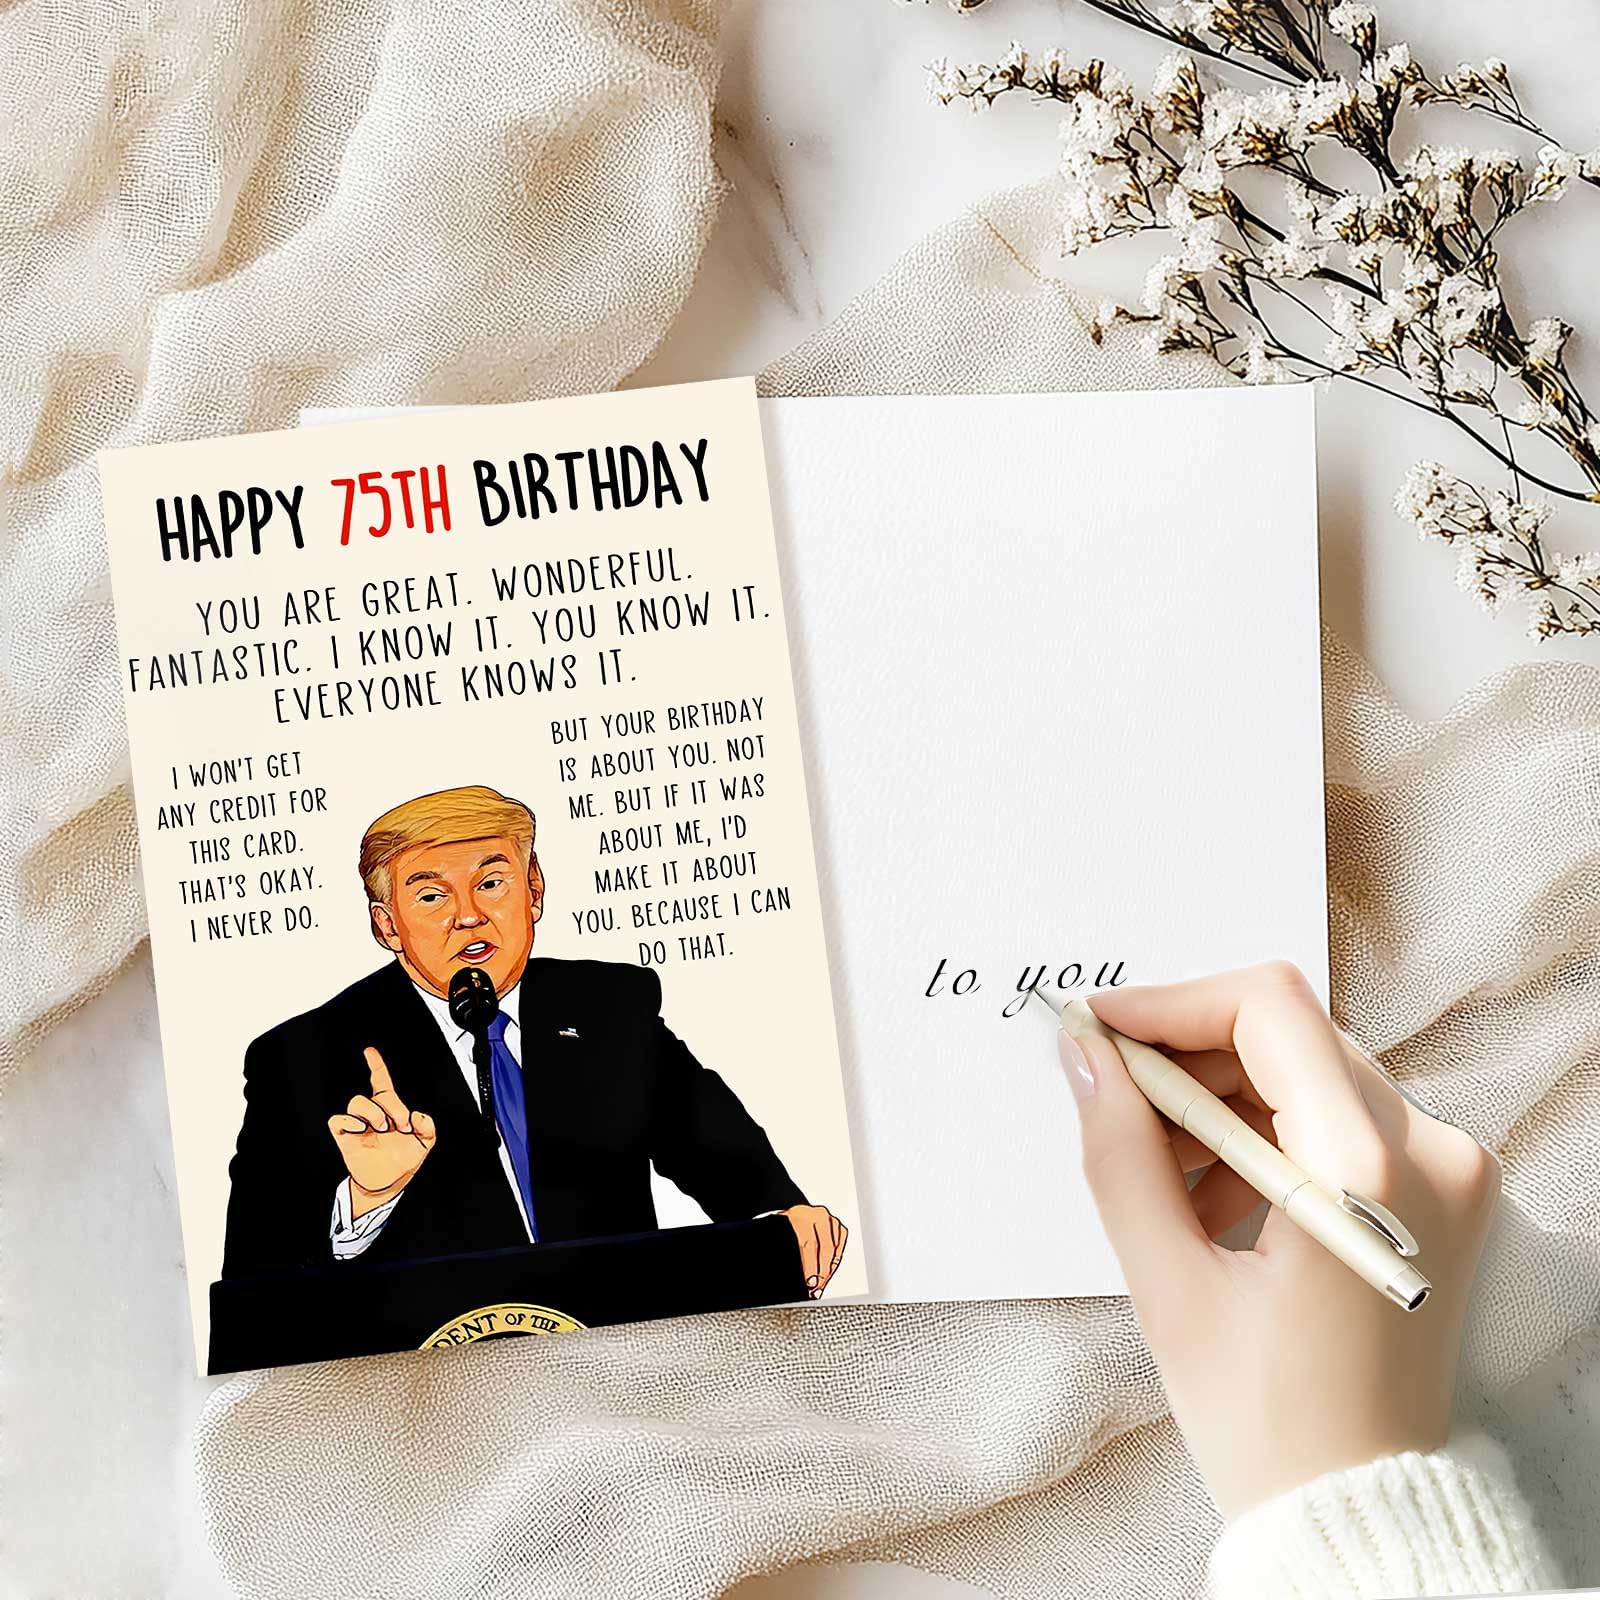 HAPPY 75TH BIRTHDAY
YOU ARE GREAT. WONDERFUL.
FANTASTIC. I KNOW IT. YOU KNOW IT.
EVERYONE KNOWS IT.
I WON'T GET
ANY CREDIT FOR
THIS CARD.
THAT'S OKAY.
I NEVER DO.
BUT YOUR BIRTHDAY
IS ABOUT YOU. NOT
ME. BUT IF IT WAS
ABOUT ME, I'D
MAKE IT ABOUT
YOU. BECAUSE I CAN
DO THAT.
DENT OF THE
to you